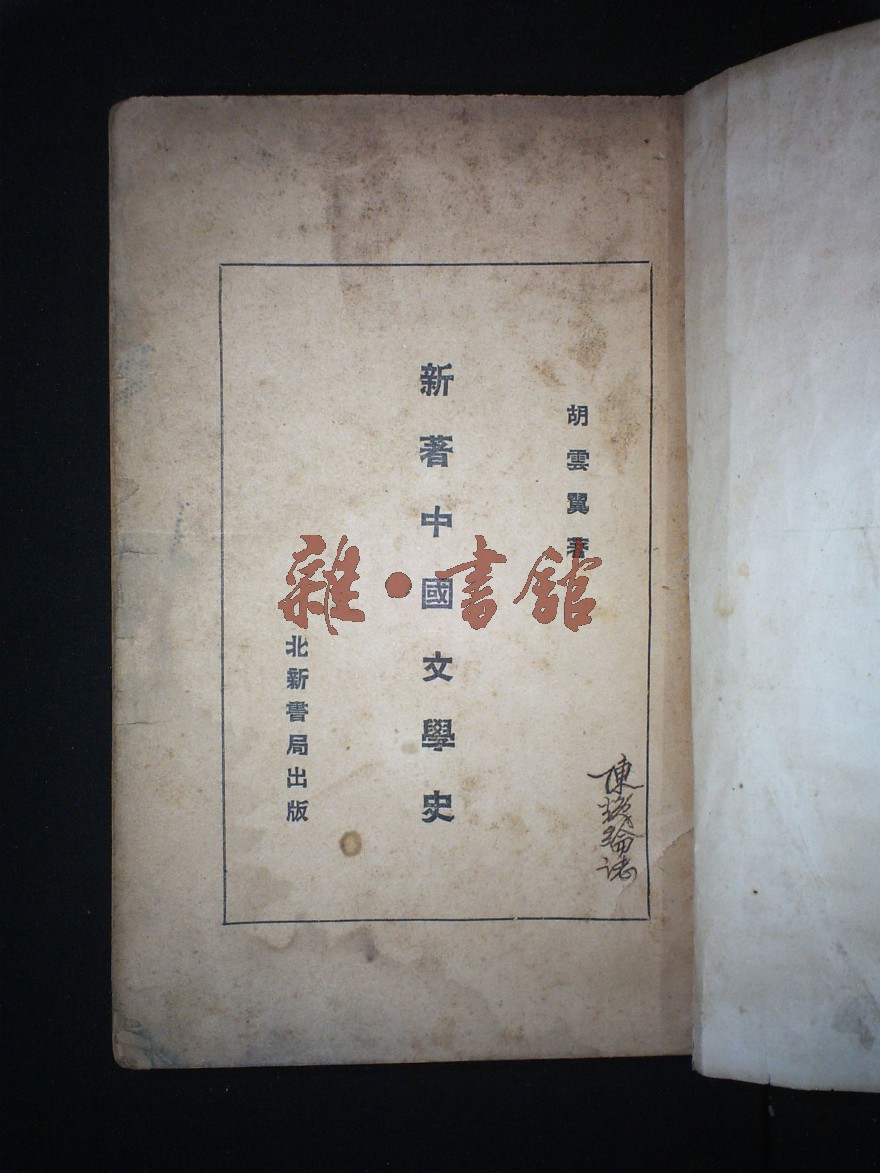 胡雲翼著
新著中國文學史
北新書局出版
雜·書館
陳
誌